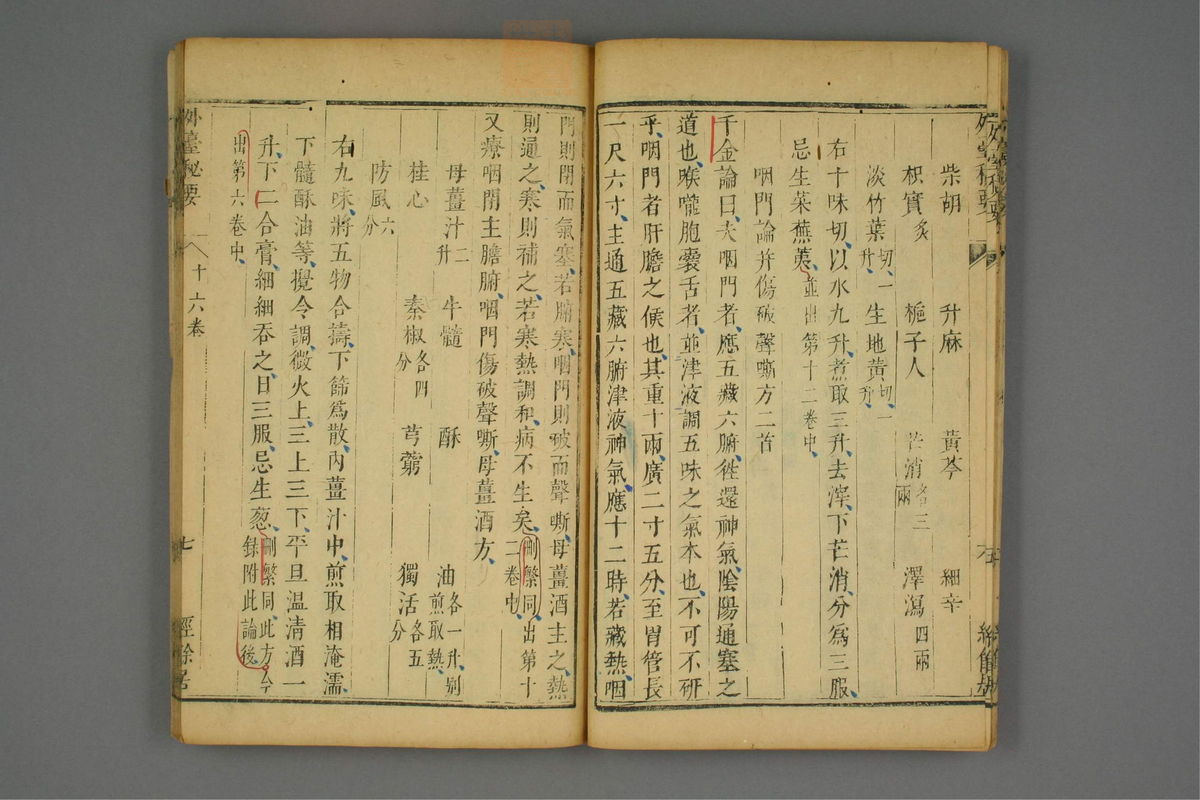 柴胡 升麻 黃芩 細辛
枳實炙 梔子人 芒消各三兩 澤瀉四兩
淡竹葉切一升 生地黃切一升
右十味切以水九升煮取三升去滓下芒消分爲三服
忌生菜蕪荑並出第十二卷中
咽門論并傷破聲嘶方二首
千金論曰夫咽門者應五藏六腑徃還神氣陰陽通塞之
道也喉嚨胞囊舌者並津液調五味之氣本也不可不硏
乎咽門者肝膽之候也其重十兩廣二寸五分至胃管長
一尺六寸主通五藏六腑津液神氣應十二時若藏熱咽
門則閉而氣塞若腑寒咽門則破而聲嘶母薑酒主之熱
則通之寒則補之若寒熱調和病不生矣刪繁同出第十二卷中
又療咽閉主膽腑咽門傷破聲嘶母薑酒方
母薑汁二升 牛髓 酥 油各一升别煎取熱
桂心 秦椒各四分 芎藭 獨活各五分
防風六分
右九味將五物合擣下篩爲散內薑汁中煎取相淹濡
下髓酥油等攪令調微火上三上三下平旦温清酒一
升下二合膏細細吞之日三服忌生葱刪繁同此方今録附此論後
出第六卷中
外臺秘要 十六卷 七 經餘居